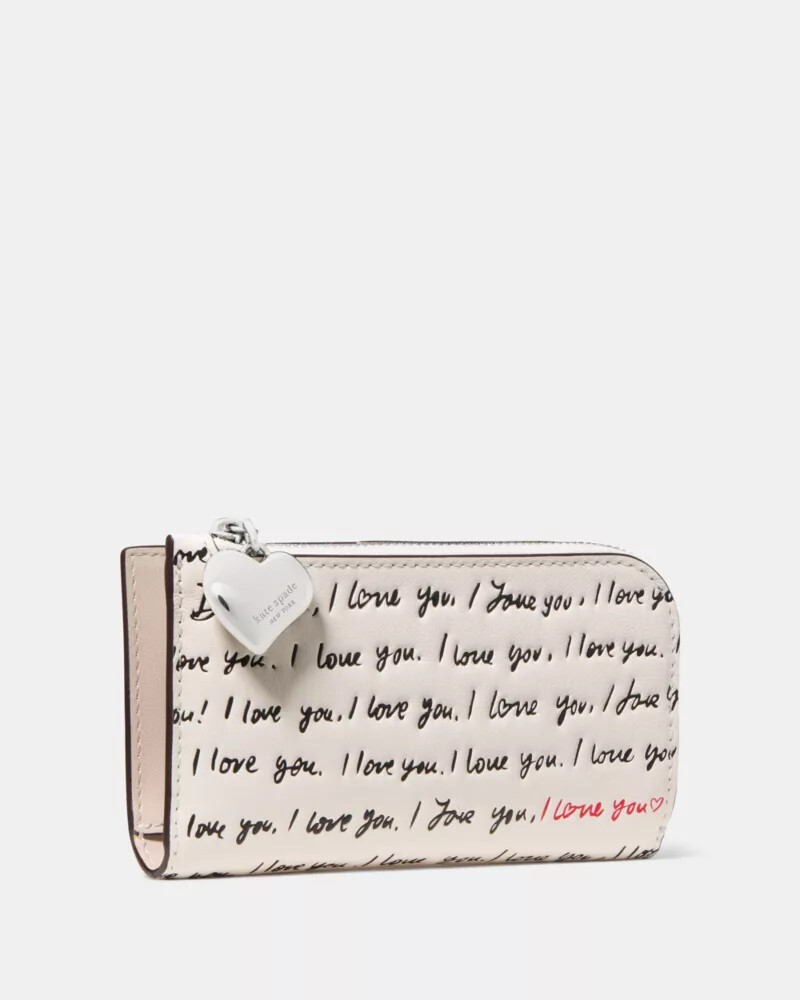 love
kate spade
NEW YORK
, I love you. I love you, I love yo
love you. I love you. I love you, I love you. I
ou! I love you, I love you, I love you, I love y
I love you. I love you. I love you. I love you
love you, I love you, I love you, I love you♡
I love you, I love you, I love you, I lo